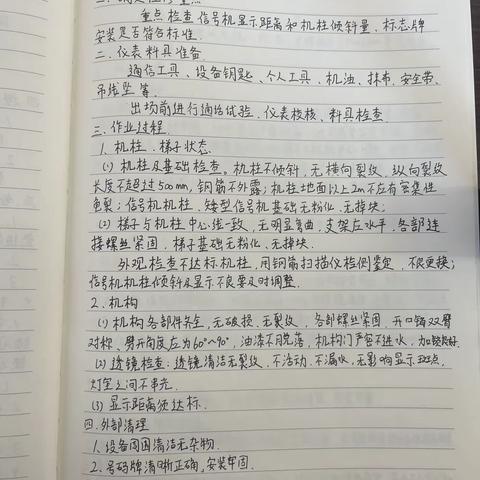 重点检查信号机显示距离和机柱倾斜量、标志牌
安装是否符合标准.
二、仪表料具准备
通信工具、设备钥匙、个人工具、机油、抹布、安全带、
吊线坠等.
出场前进行通话试验、仪表校核、料具检查
三、作业过程.
1、机柱、梯子状态.
(1) 机柱及基础检查。机柱不倾斜，无横向裂纹，纵向裂纹
长度不超过500mm，钢筋不外露；机柱地面以上2m不应有密集性
龟裂；信号机机柱、矮型信号机基础无粉化、无掉块；
(2) 梯子与机柱中心线一致，无明显弯曲，支架应水平，各部连
接螺丝紧固，梯子基础无粉化、无掉块.
外观检查不达标机柱，用钢筋扫描仪检测鉴定，不良更换；
信号机机柱倾斜及显示不良要及时调整.
2、机构
(1) 机构各部件齐全，无破损、无裂纹，各部螺丝紧固，开口销双臂
对称、劈开角度应为60°~90°，油漆不脱落，机构门严密不进水，加锁良好.
(2) 透镜检查：透镜清洁无裂纹，不活动、不漏水，无影响显示斑点，
灯室之间不串光.
(3) 显示距离须达标.
四、外部清理
1、设备周围清洁无杂物.
2、号码牌清晰正确，安装牢固.